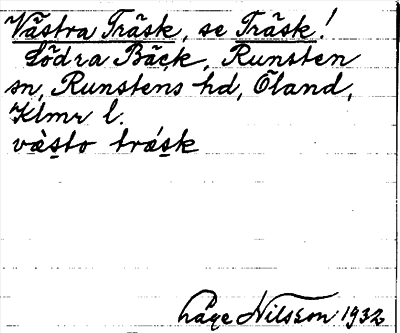 Västra Träsk, se Träsk!
Södra Bäck, Runsten
sn, Runstens hd, Öland,
Klmr l.
vàsto trásk
Åge Nilsson 1932